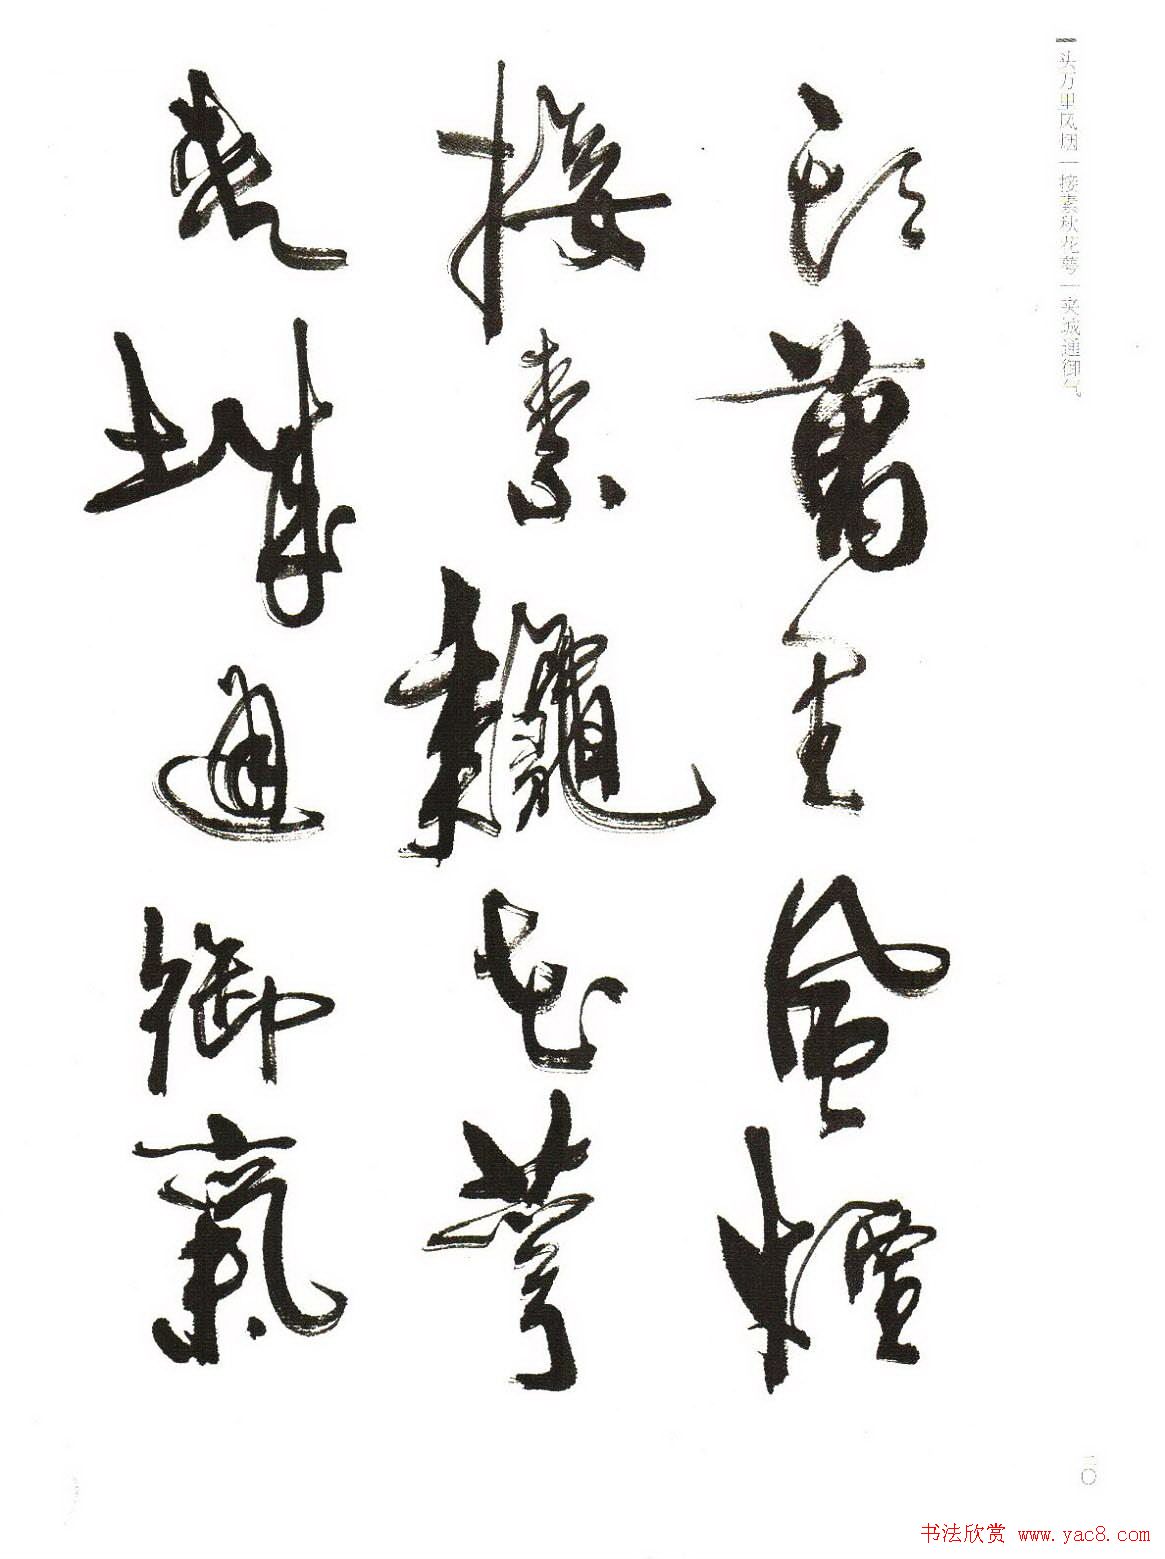 头万里风烟｜接素秋花萼｜夹城通御气
頭萬里風煙
接素龝花萼
夾城通御氣
二〇
书法欣赏 www.yac8.com